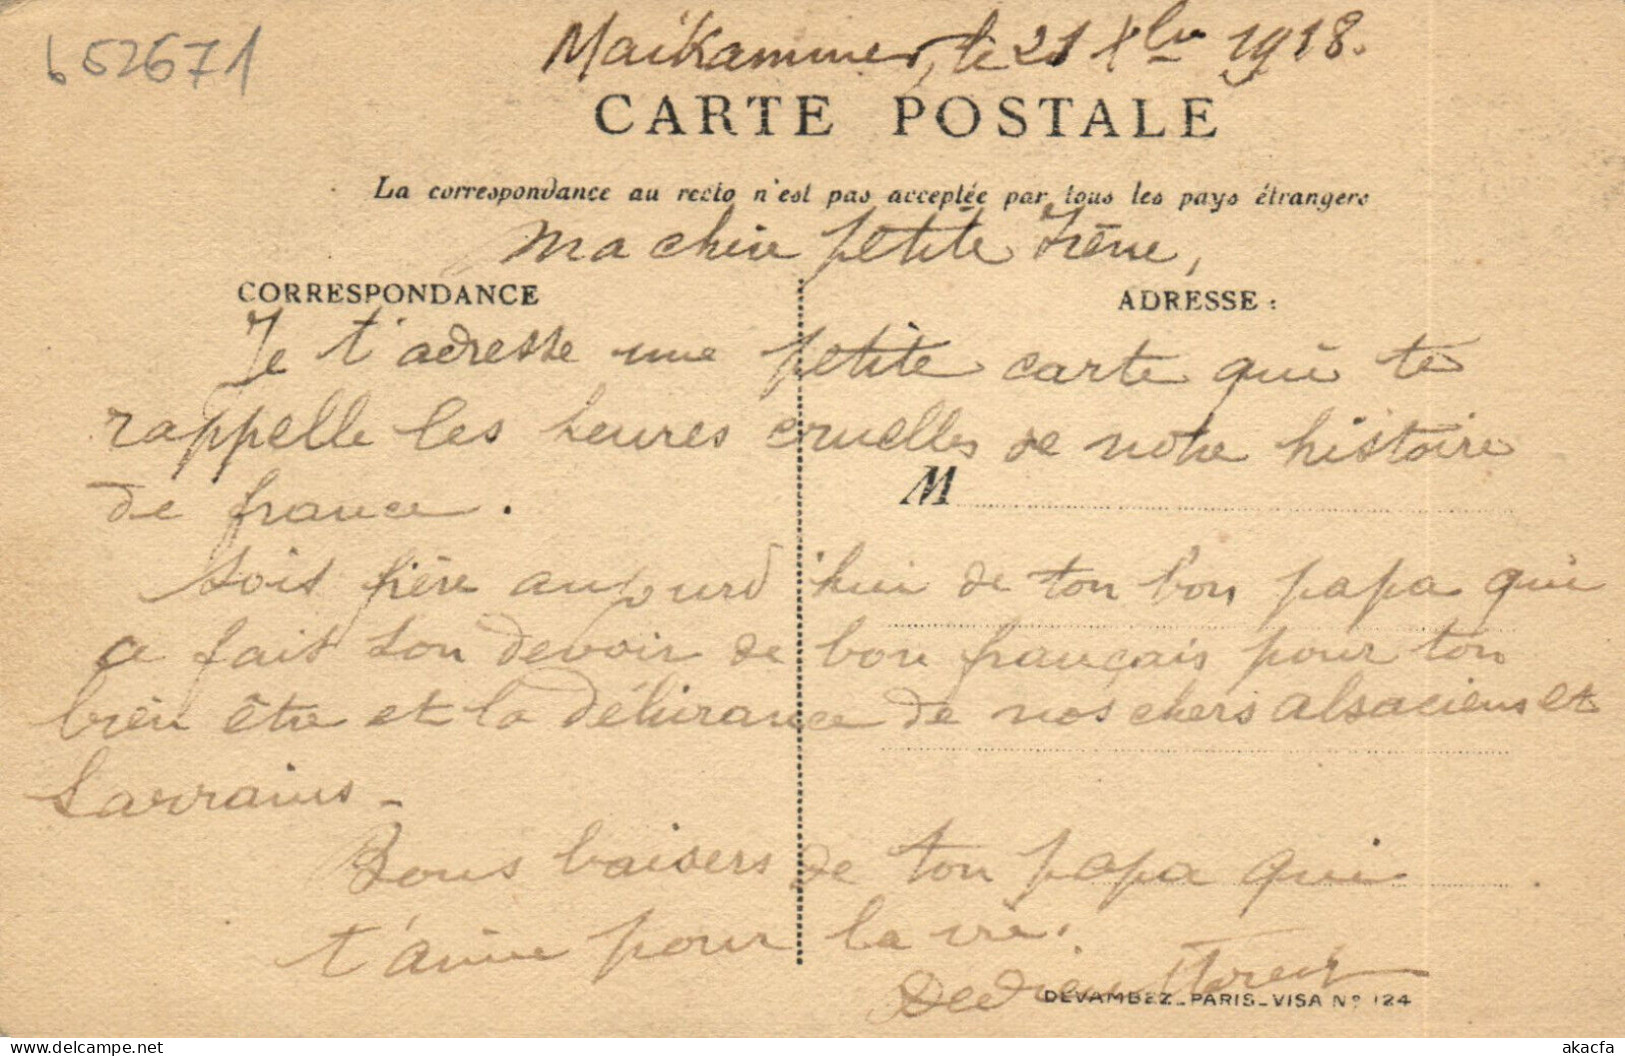 652671
Maikammer, le 21 Xbre 1918.
CARTE POSTALE
La correspondance au recto n'est pas acceptée par tous les pays étrangers
Ma chère petite Irène,
CORRESPONDANCE
ADRESSE :
Je t'adresse une petite carte qui te
rappelle les heures cruelles de notre histoire
de france.
M
Sois fière aujourd'hui de ton bon papa qui
a fait son devoir de bon français pour ton
bien être et la délivrance de nos chers alsaciens et
Lorrains -
Bons baisers de ton papa qui
t'aime pour la vie.
DEVAMBEZ_PARIS_VISA Nº 124
akacfa